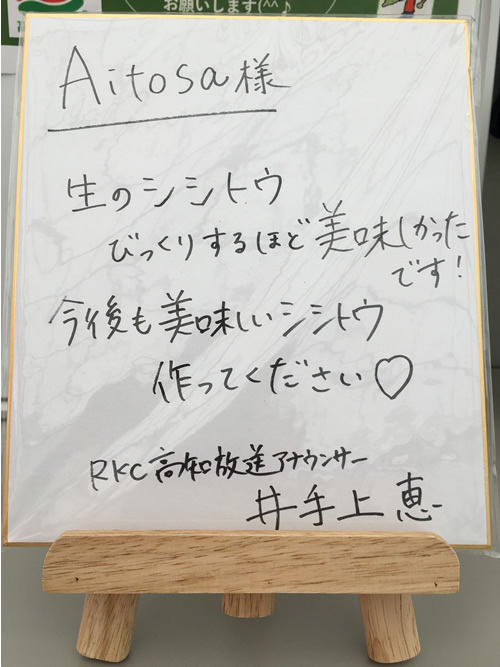 お願いします(^^♪
Aitosa様
生のシシトウ
びっくりするほど美味しかった
です!
今後も美味しいシシトウ
作ってください♡
RKC高知放送アナウンサー
井手上恵